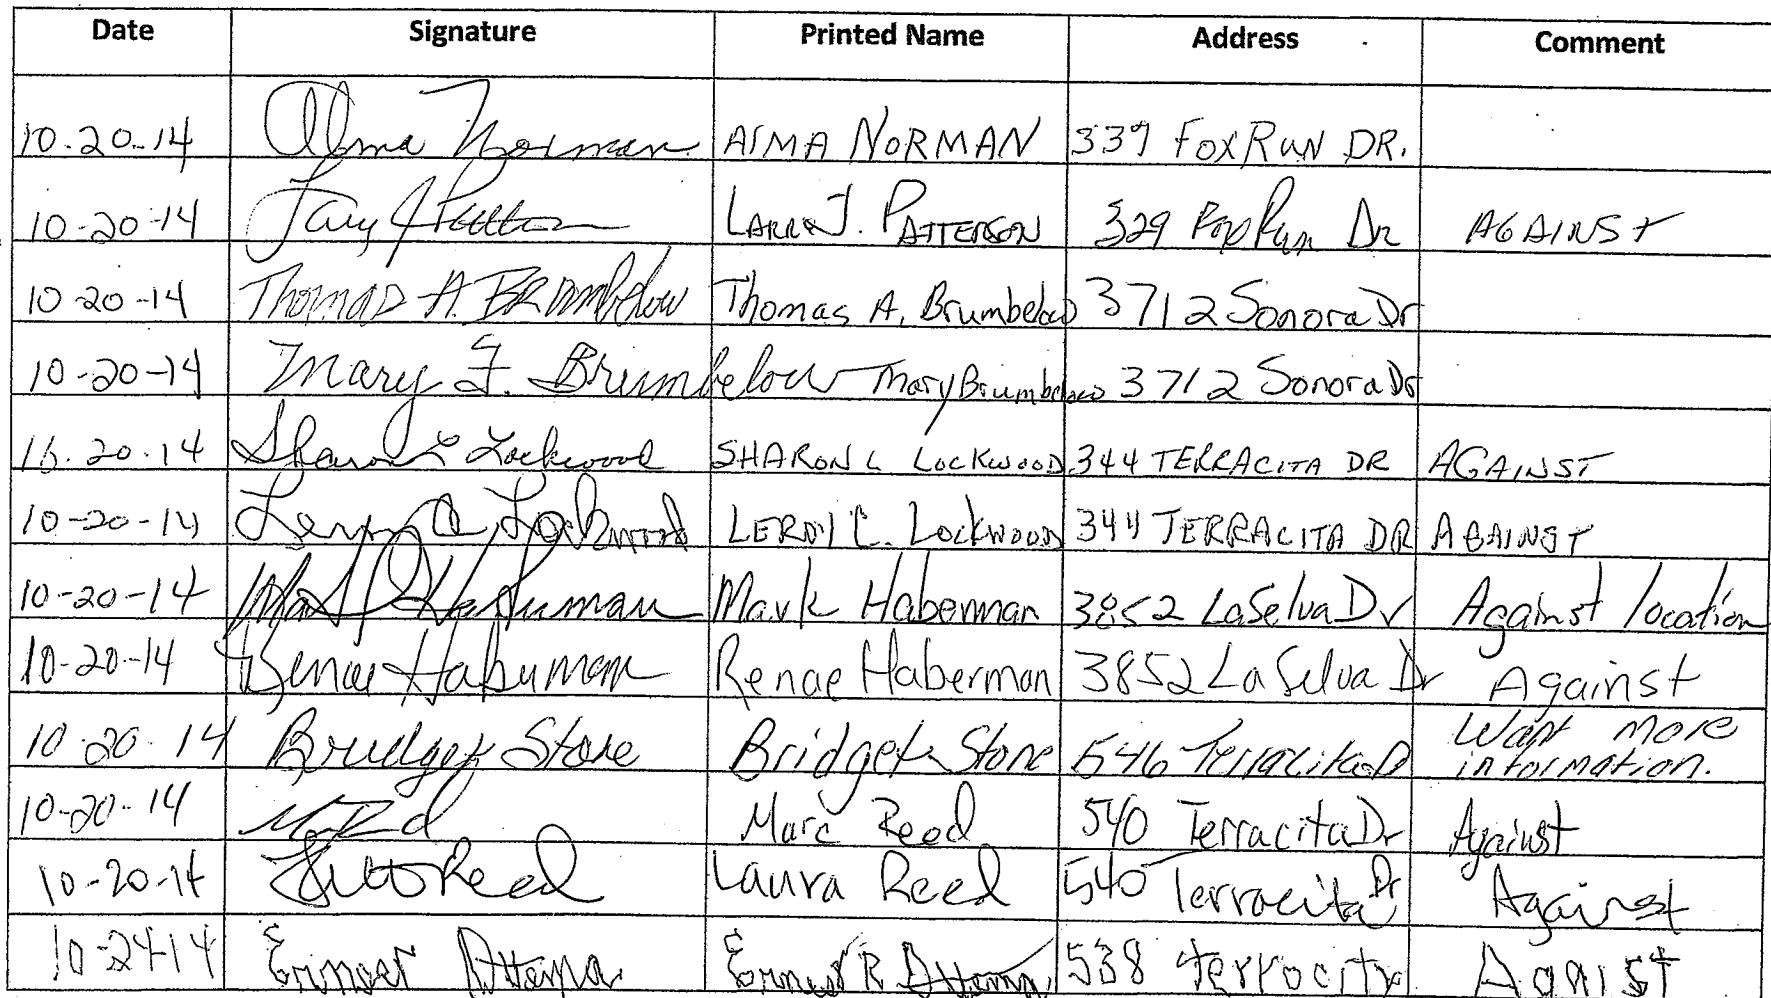 Date Signature Printed Name Address Comment
10.20.14 Alma Norman AlMA NORMAN 339 FOX RUN DR.
10-20-14 LARRY J. PATTERSON 329 Fox Run Dr AGAINST
10-20-14 Thomas A. Brumbelow Thomas A. Brumbelow 3712 Sonora Dr
10-20-14 Mary F. Brumbelow Mary Brumbelow 3712 Sonora Dr
10.20.14 Sharon L Lockwood SHARON L LOCKWOOD 344 TERRACITA DR AGAINST
10-20-14 Leroy C Lockwood LEROY C. LOCKWOOD 344 TERRACITA DR AGAINST
10-20-14 Mark Haberman Mark Haberman 3852 LaSelva Dr Against location
10-20-14 Renae Haberman Renae Haberman 3852 La Selva Dr Against
10-20-14 Bridget Stone Bridget Stone 546 Terracita D Want more
information.
10-20-14 Marc Reed 540 Terracita Dr Against
10-20-14 Reed Laura Reed 540 Terracita Dr Against
10-2414 538 terrocity Agnist